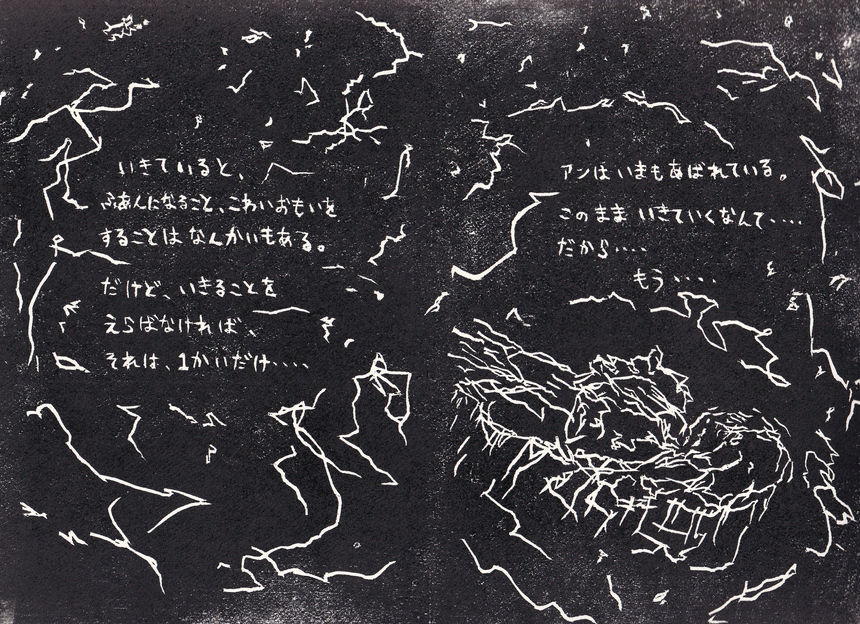 いきていると、
ふあんになること、こわいおもいを
することはなんかいもある。
だけど、いきることを
えらばなければ、
それは、1かいだけ‥‥
アンはいまもあばれている。
このまま いきていくなんて‥‥
だから‥‥
もう‥‥